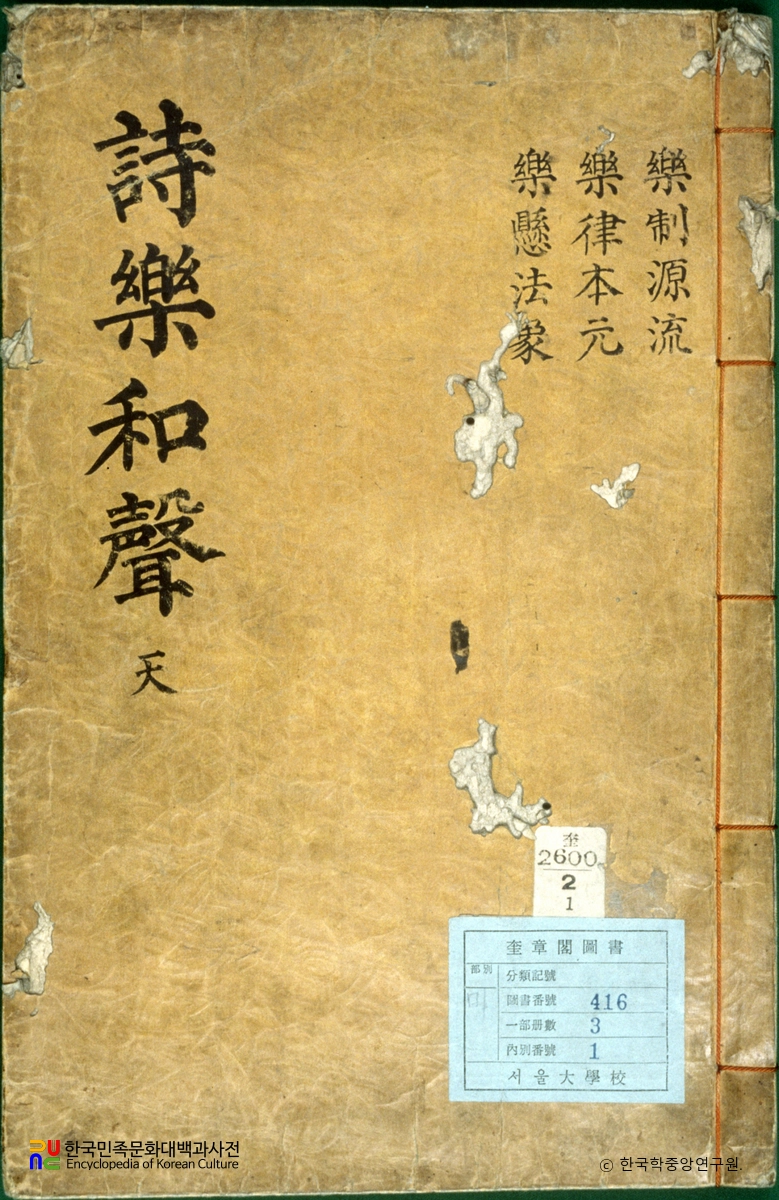 樂制源流
樂律本元
樂懸法象
詩樂和聲 天
奎
2600
2
1
奎章閣圖書
部別
分類記號
圖書番號 416
一部册數 3
內別番號 1
서울大學校
한국민족문화대백과사전
Encyclopedia of Korean Culture
ⓒ 한국학중앙연구원.